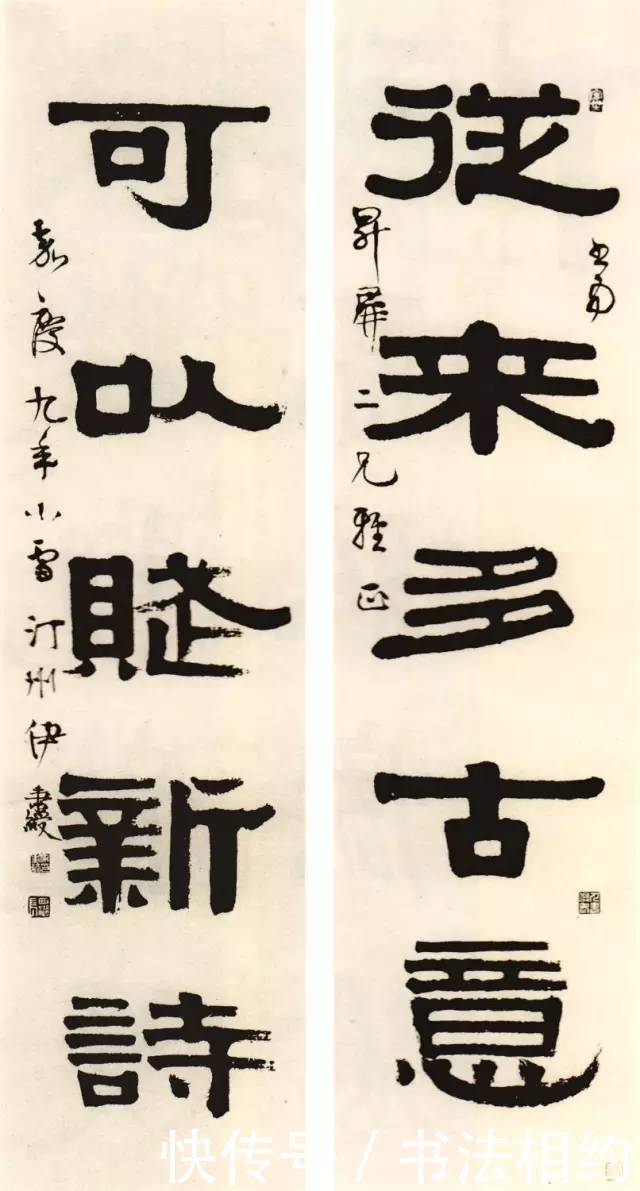 從來多古意
書為
昇屏二兄雅正
可以賦新詩
嘉慶九年小雪汀州伊秉綬
快传号 / 书法相约